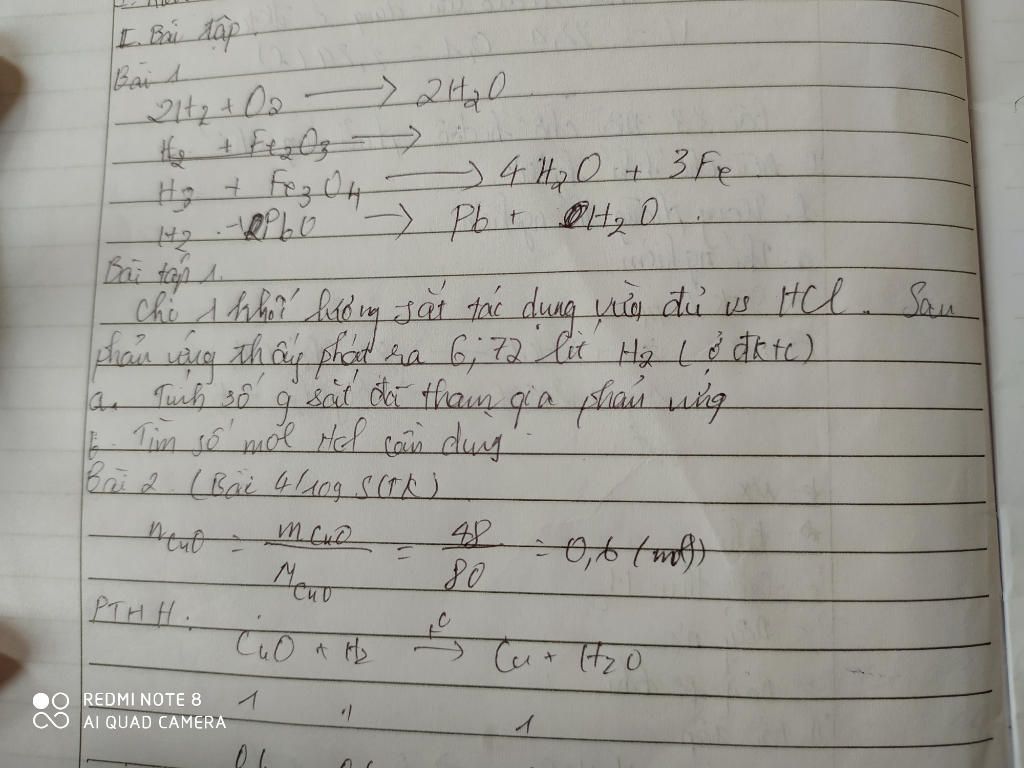 II. Bài tập.
Bài 1
2H2 + O2 → 2H2O
H2 + Fe2O3 →
H3 + Fe3O4 → 4H2O + 3Fe
H2 + PbO → Pb + H2O
Bài tập 1.
Cho 1 khối lượng sắt tác dụng vừa đủ vs HCl. Sau
phản ứng thấy phát ra 6,72 lít H2 (ở đktc)
a. Tính số g sắt đã tham gia phản ứng
b. Tìm số mol HCl cần dung
Bài 2 (Bài 4/109 SGK)
nCuO = mCuO / MCuO = 48 / 80 = 0,6 (mol)
PTHH: CuO + H2 t°C → Cu + H2O
1 1 1
0,6 0,6
REDMI NOTE 8
AI QUAD CAMERA